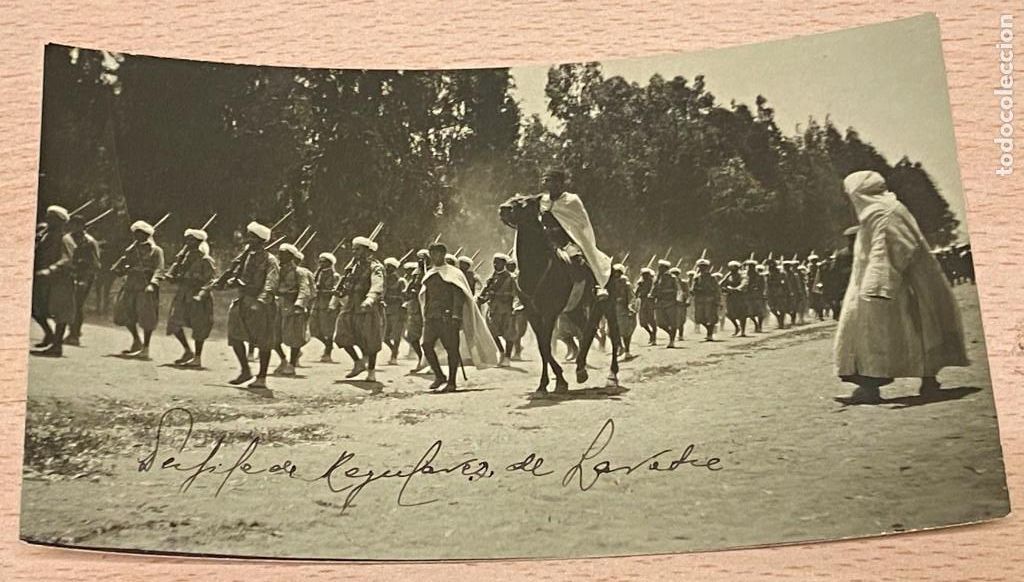 Desfile de Regulares de Larache
todocoleccion